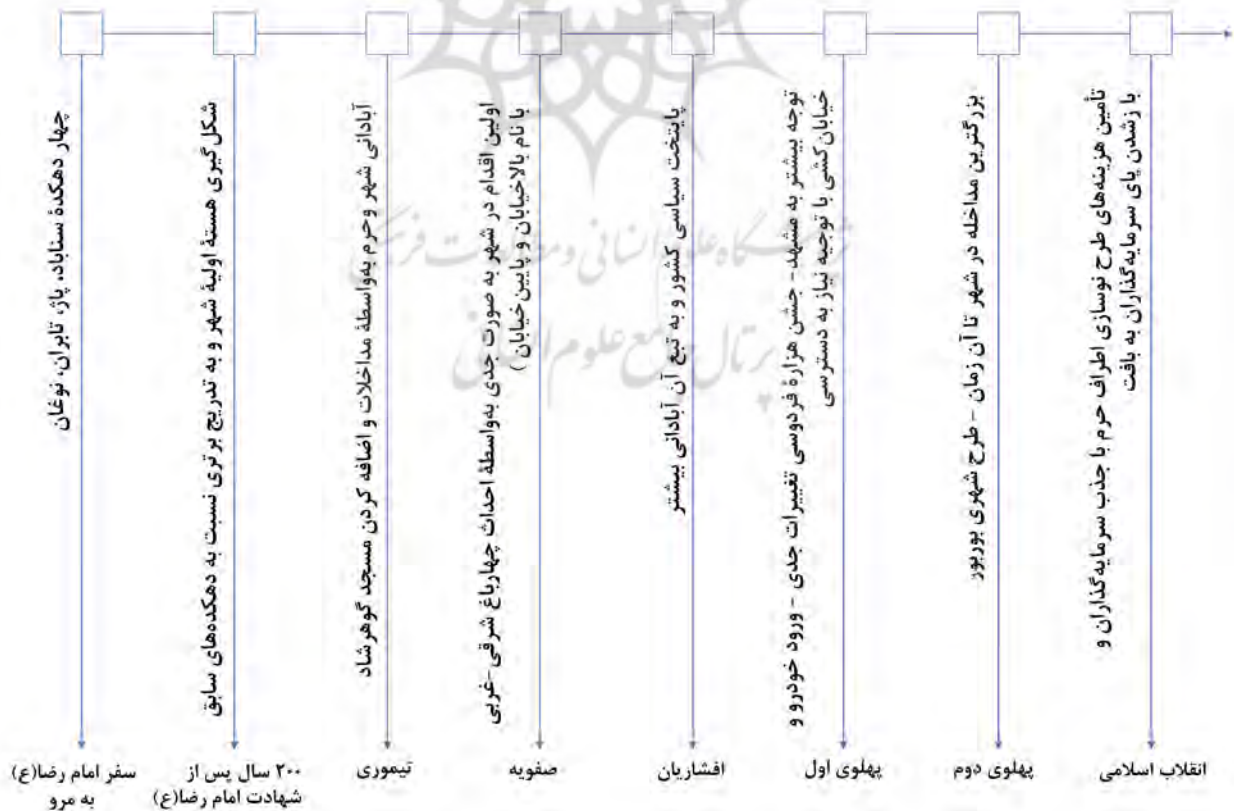 چهار دهکدهٔ سناباد، پاژ، تابران، نوغان
شکل‌گیری هستهٔ اولیهٔ شهر و به تدریج برتری نسبت به دهکده‌های سابق
آبادانی شهر وحرم به‌واسطهٔ مداخلات و اضافه کردن مسجد گوهرشاد
اولین اقدام در شهر به صورت جدی به‌واسطهٔ احداث چهارباغ شرقی -غربی
با نام بالاخیابان و پایین خیابان )
پایتخت سیاسی کشور و به تبع آن آبادانی بیشتر
توجه بیشتر به مشهد- جشن هزارهٔ فردوسی تغییرات جدی - ورود خودرو و
خیابان‌کشی با توجیه نیاز به دسترسی
بزرگترین مداخله در شهر تا آن زمان -طرح شهری بوربور
تأمین هزینه‌های طرح نوسازی اطراف حرم با جذب سرمایه‌گذاران و
بازشدن پای سرمایه‌گذاران به بافت
پژوهشگاه علوم انسانی و مطالعات فرهنگی
پرتال جامع علوم انسانی
سفر امام رضا(ع)
به مرو
۲۰۰ سال پس از
شهادت امام رضا(ع)
تیموری
صفویه
افشاریان
پهلوی اول
پهلوی دوم
انقلاب اسلامی